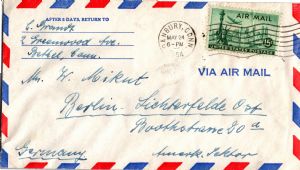 AFTER 5 DAYS, RETURN TO
S. Brandt
2 Greenwood Ave.
Bethel, Conn.
DANBURY, CONN
MAY 24
6-PM
AIR MAIL
15¢
VIA AIR MAIL
Mr. W. Mikut
Berlin-Lichterfelde Ost
Boothstrasse 20 a
Amerik. Sektor
Germany